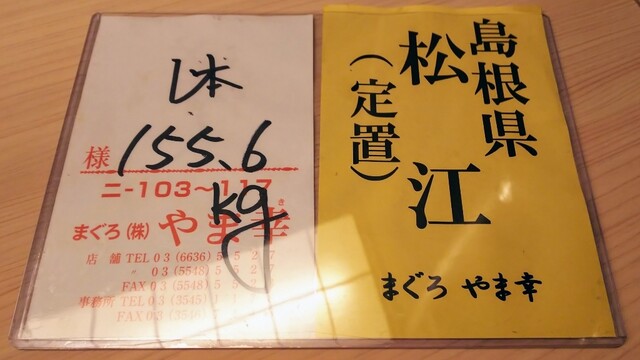 155.6
kg
様
ニ-103〜117
まぐろ(株)やま幸
き
店舗 TEL 03 (6636) 5 5 2 7
03 (5548) 5 5 2 7
FAX 03 (5548)
事務所 TEL 03 (3545)
FAX 03
島根県
松江
(定置)
まぐろ やま幸